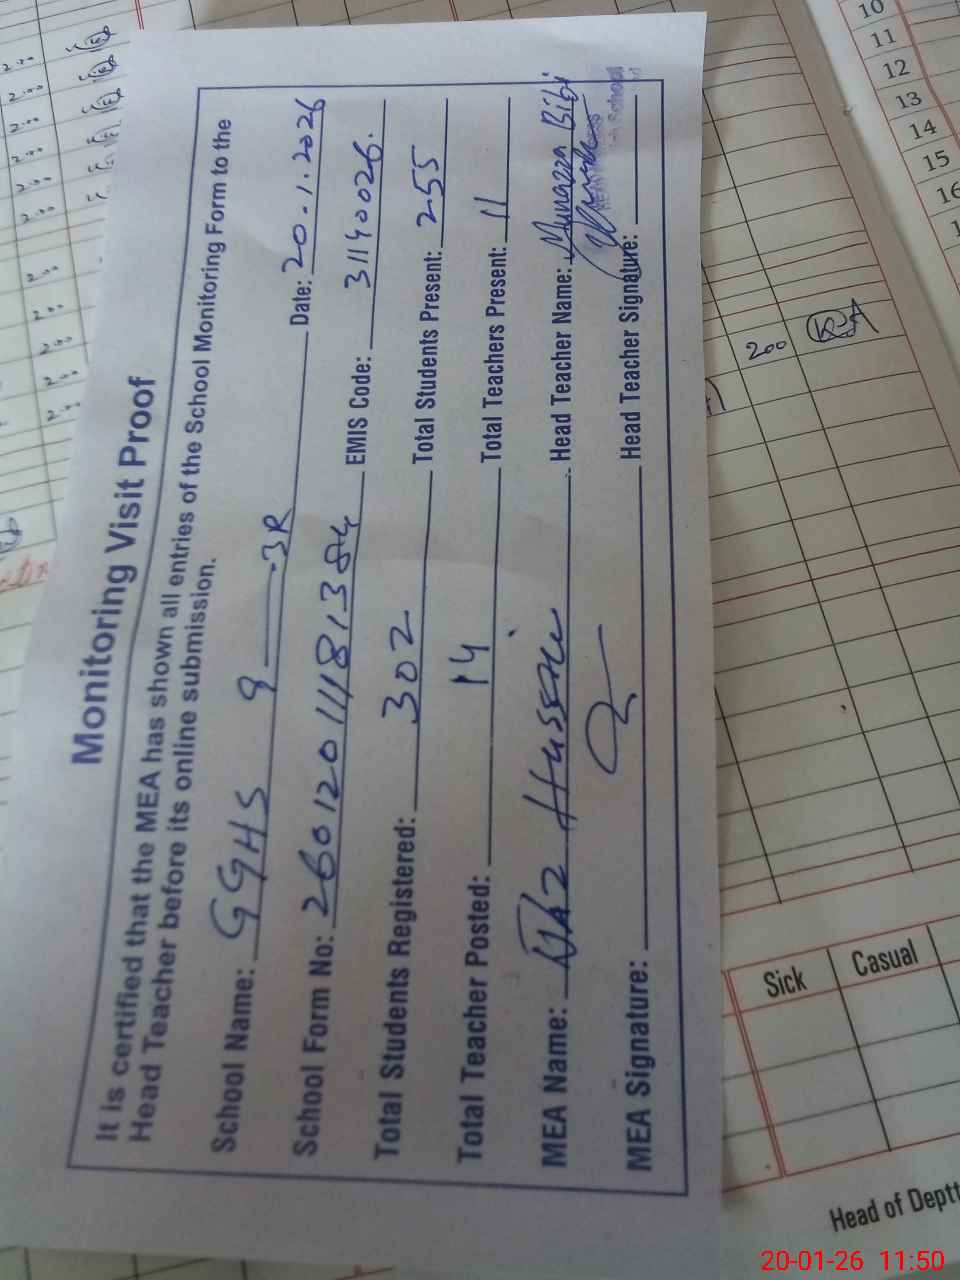 Monitoring Visit Proof
It is certified that the MEA has shown all entries of the School Monitoring Form to the
Head Teacher before its online submission.
School Name: GGHS 9-3R Date: 20.1.2026
School Form No: 260120111181384 EMIS Code: 31140026.
Total Students Registered: 302 Total Students Present: 255
Total Teacher Posted: 14 Total Teachers Present: 11
MEA Name: Hussain Head Teacher Name: Munazza Bibi
MEA Signature: Head Teacher Signature:
School
10
11
12
13
14
15
16
200
2.00
2.00
2.00
2.00
2.00
2.00
2.00
2.00
2.00
2.00
2.00
Sick Casual
Head of Deptt
20-01-26 11:50